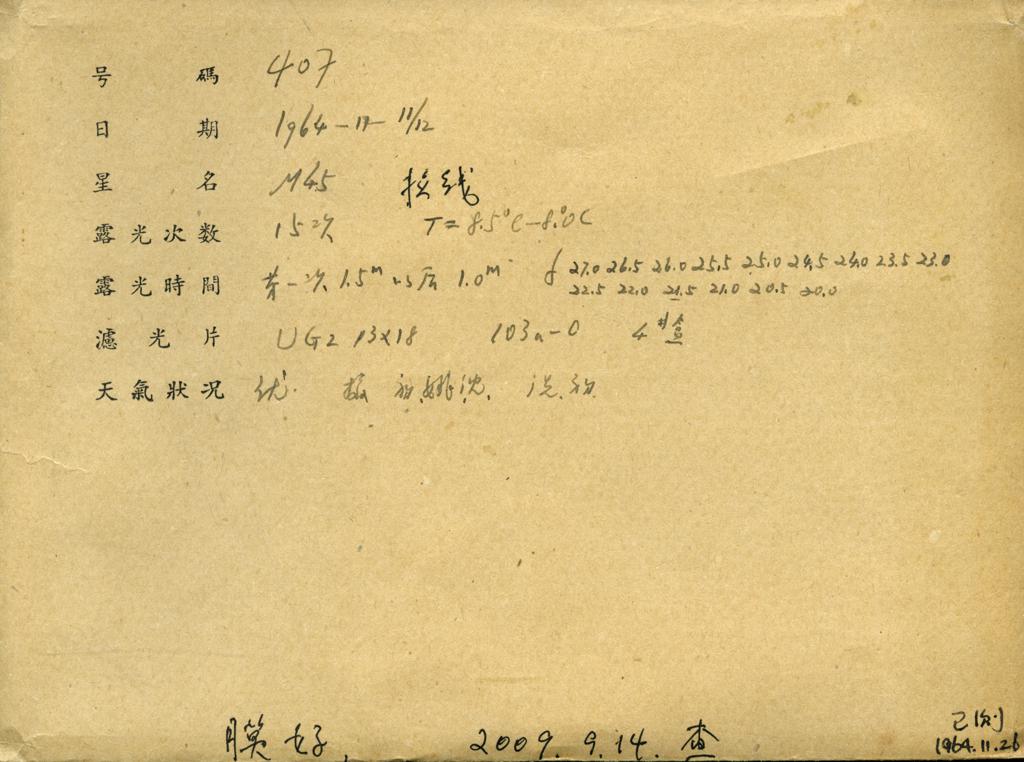 号碼 407
日期 1964-11-11/12
星名 M45
露光次数 15次 T=8.5°C-8.0°C
露光時間 第一次 1.5ᵐ 以后 1.0ᵐ f 27.0 26.5 26.0 25.5 25.0 24.5 24.0 23.5 23.0
22.5 22.0 21.5 21.0 20.5 20.0
濾光片 UG2 13x18 103a-O 4#盒
天氣狀况 优.
膜好. 2009.9.14.查
已測
1964.11.26